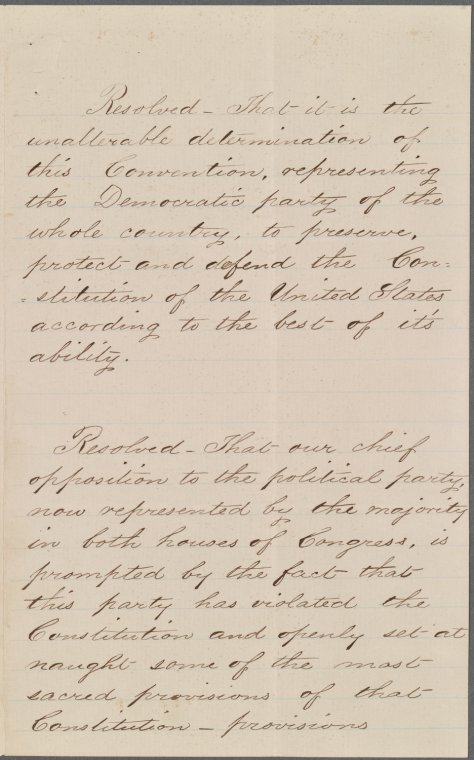 Resolved - That it is the
unalterable determination of
this Convention, representing
the Democratic party of the
whole country, to preserve,
protect and defend the Con=
=stitution of the United States
according to the best of it's
ability.
Resolved - That our chief
opposition to the political party,
now represented by the majority
in both houses of Congress, is
prompted by the fact that
this party has violated the
Constitution and openly set at
naught some of the most
sacred provisions of that
Constitution - provisions